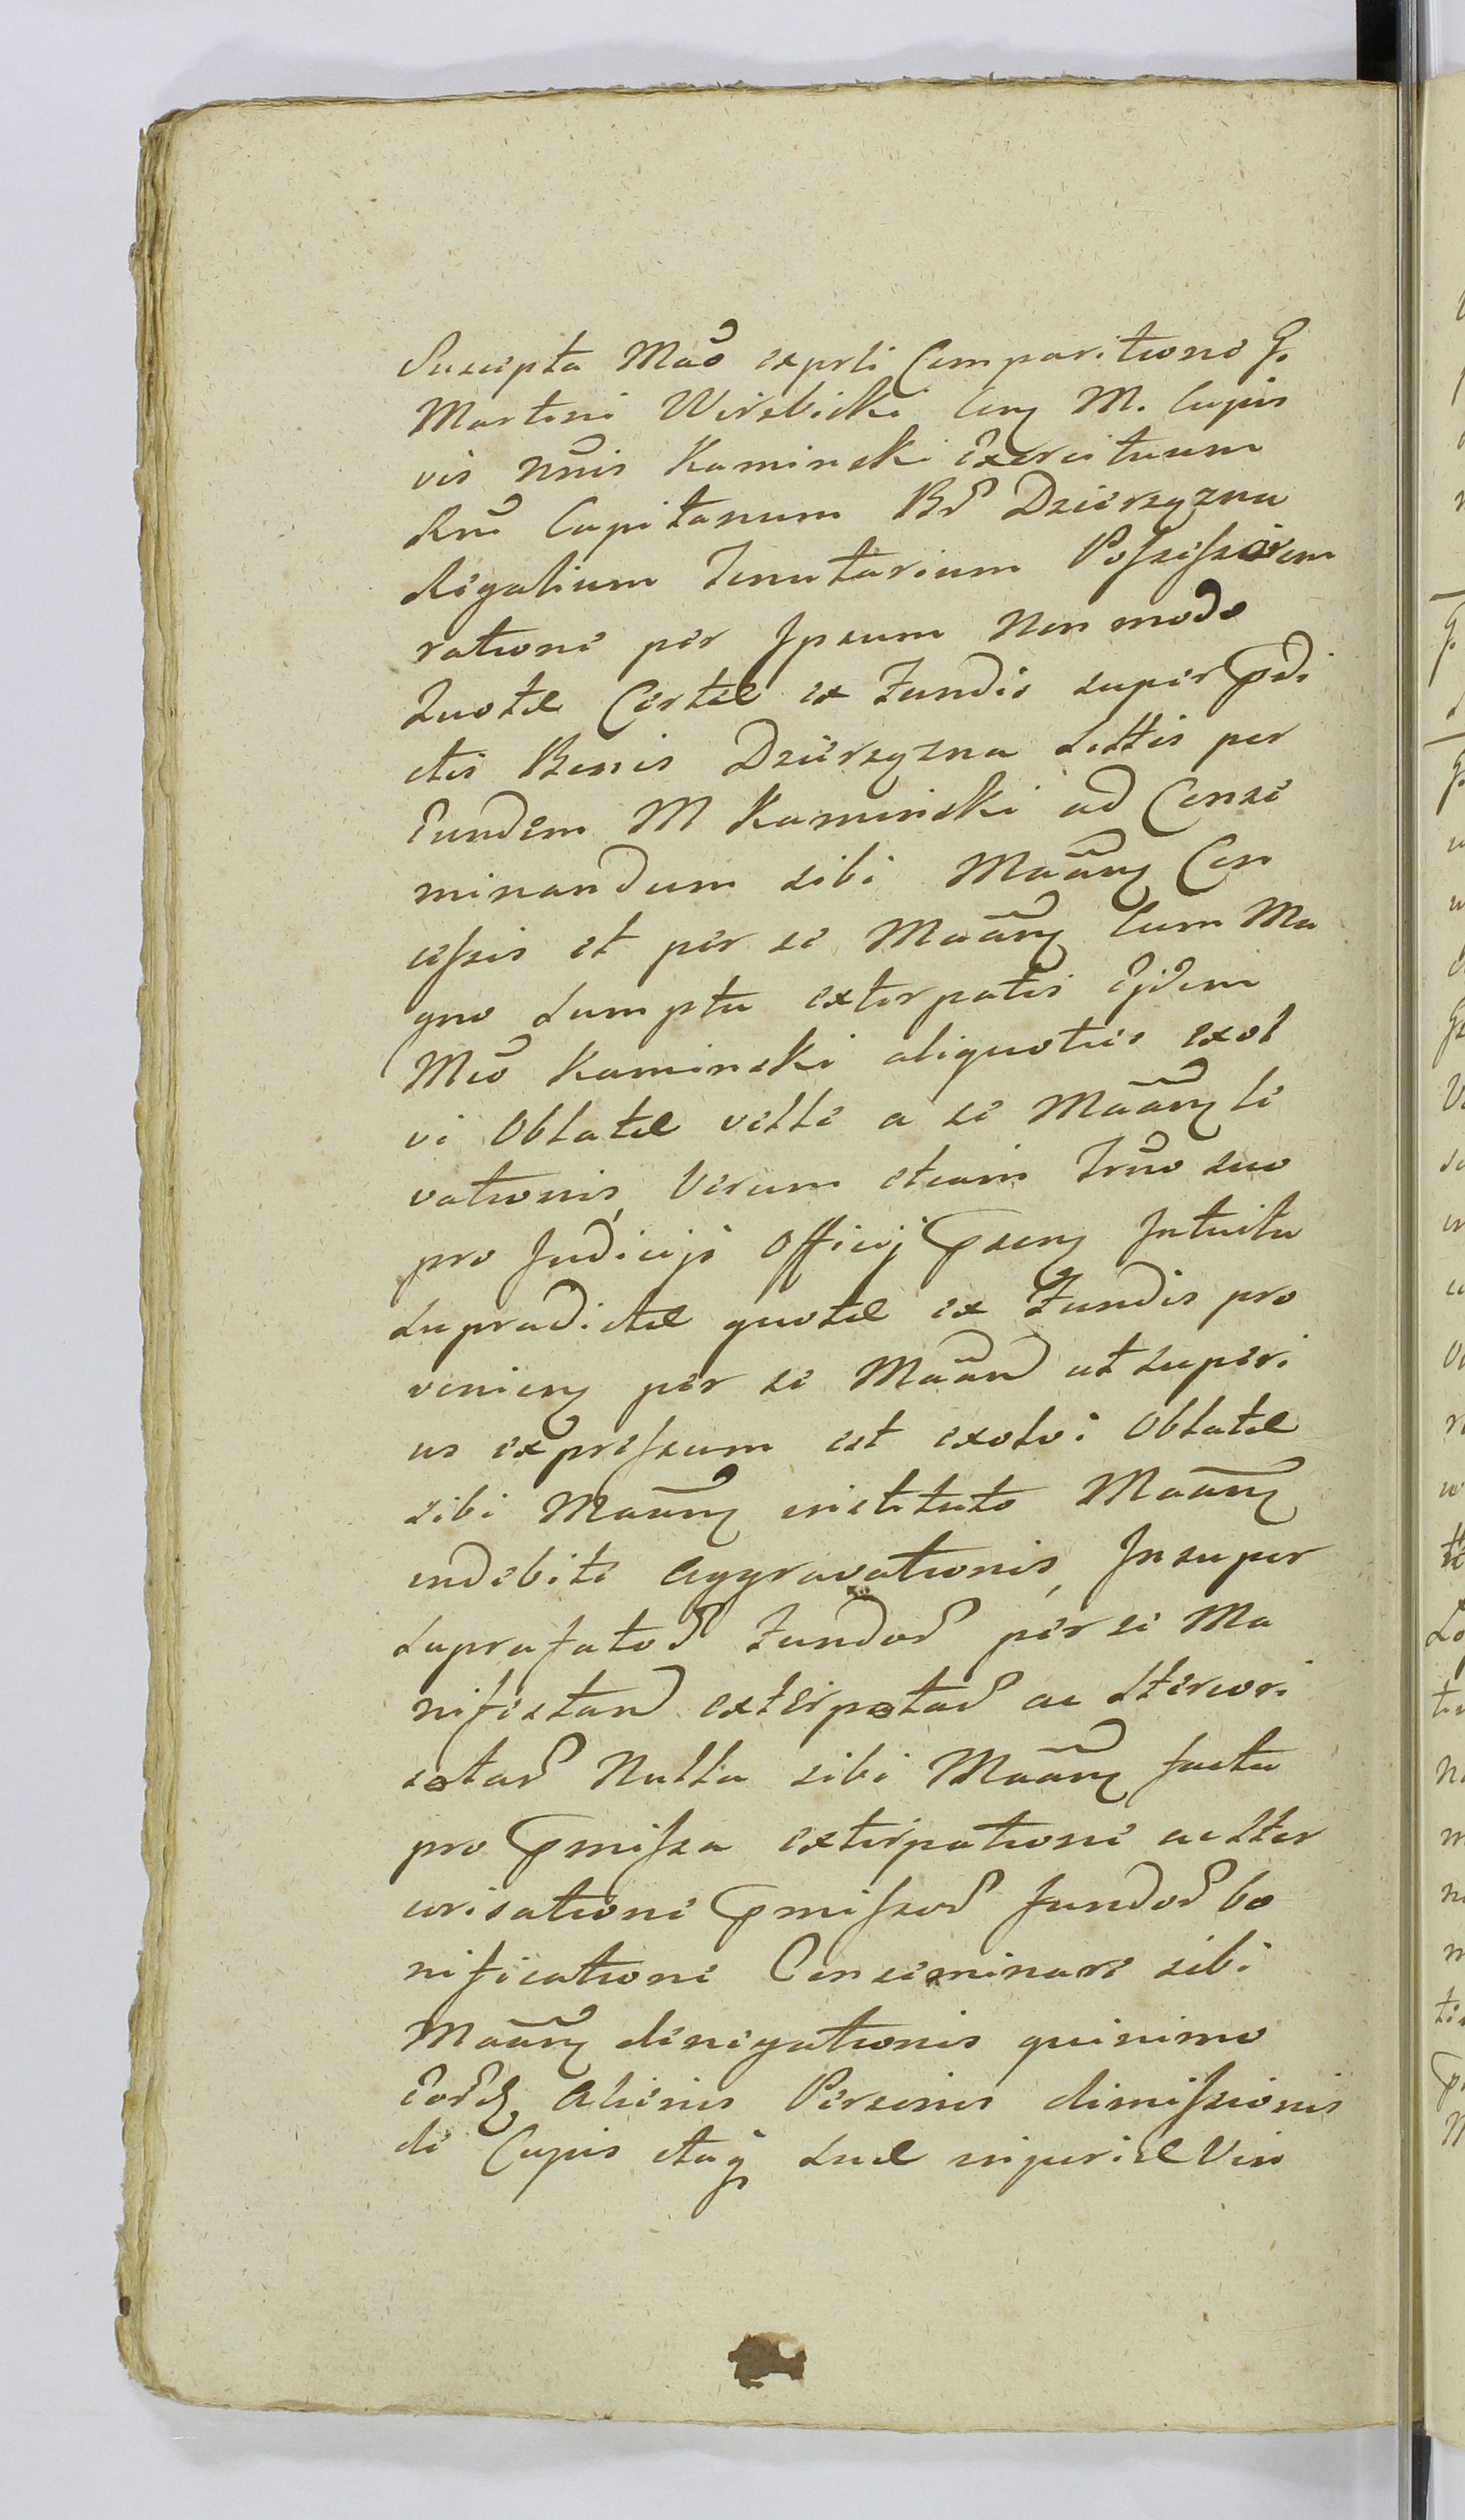 Suscepta Mãõ exprti Comparitione G.
Martini Wirzbicki cum M. Cujus
vis Nnis Kaminski Exercituum
Rni Capitanum Bd Dzierzgzna
Regalium Tenutarium Possessorem
ratione per Ipsum non modo
Quotæ Certæ ex Fundis super prædi
ctis Bonis Dzierzgzna dittis per
Eundem M Kaminski ad Conse
minandum sibi Maãnꝫ Con
cessis et per se Maãnꝫ Cum Ma
gno Sumptu extirpatis Ejdem
Mco Kaminski aliquoties exol
vi Oblatæ velle a se Maãnꝫ le
vationis, Verum etiam Trño suo
pro Judicijs Officij præsenꝫ Intuitu
Supradictæ quotæ ex Fundis pro
venienꝫ per se Maãnd ut superi
us expressum est exolvi Oblatæ
sibi Maãnꝫ instituto Maãnꝫ
indebite Aggravationis, Insuper
Suprafatos Fundos per se Ma
nifestand extirpatos ac stercori
satos Nulla sibi Maãnꝫ facta
pro præmissa extirpatione ac ster
corisatione præmissos fundos bo
nificatione Conseminare sibi
Maãnꝫ denegationis quinimo
Eosdꝫ Alienis Personis dimissionis
de Cujus itaqꝫ suæ injuriæ Vin